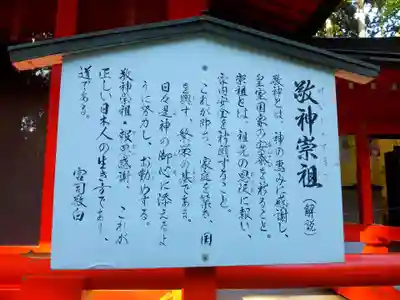 敬神崇祖
（解説）
敬神とは、神の恵みに感謝し、
皇室国家の安泰を祈ること。
崇祖とは、祖先の恩沢に報い、
家内安全を祈願すること。
これが即ち、家庭を築き、国
を興す、繁栄の基である。
日々是神の御心に添えるよ
うに努力し、お勤めする。
敬神崇祖、報恩感謝、これが
正しい日本人の生き方であり、
道である。
宮司敬白